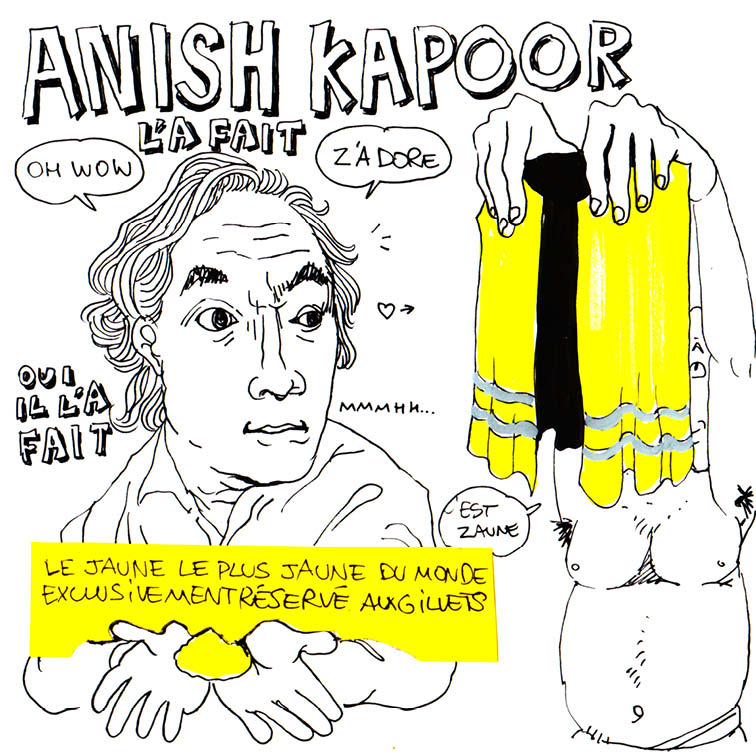 ANISH KAPOOR
L'A FAIT
OH WOW
Z'ADORE
OUI
IL L'A
FAIT
MMMHH...
C'EST
ZAUNE
LE JAUNE LE PLUS JAUNE DU MONDE
EXCLUSIVEMENT RÉSERVÉ AUX GILLETS